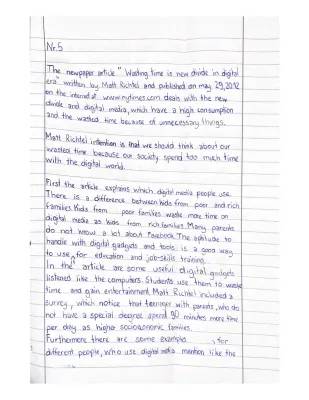 Nr.5
The newpaper article "Wasting time is new divide in digital
era" written by Matt Richtel and published on may 29,2012
on the internet at www.nytimes.com deals with the new
divide and digital media, which have a high consumption
and the wasted time because of unnecessary things.
Matt Richtel intention is that we should think about our
wasted time because our society spend too much time
with the digital world.
First the article explains which digital media people use.
There is a difference between kids from poor and rich
families. Kids from poor families waste more time on
digital media as kids from rich families. Many parents
do not know a lot about Facebook. The aptitude to
handle with digital gadgets and tools is a good way
to use for education and job-skills training.
In the article are some useful digital gadgets
listened like the computers. Students use them to waste
time and gain entertainment. Matt Richtel included a
survey, which notice that teenager with parents, who do
not have a special degree spend 90 minutes more time
per day as higher socioeconomic families.
Furthermore there are some examples for
different people, who use digital media mention like the